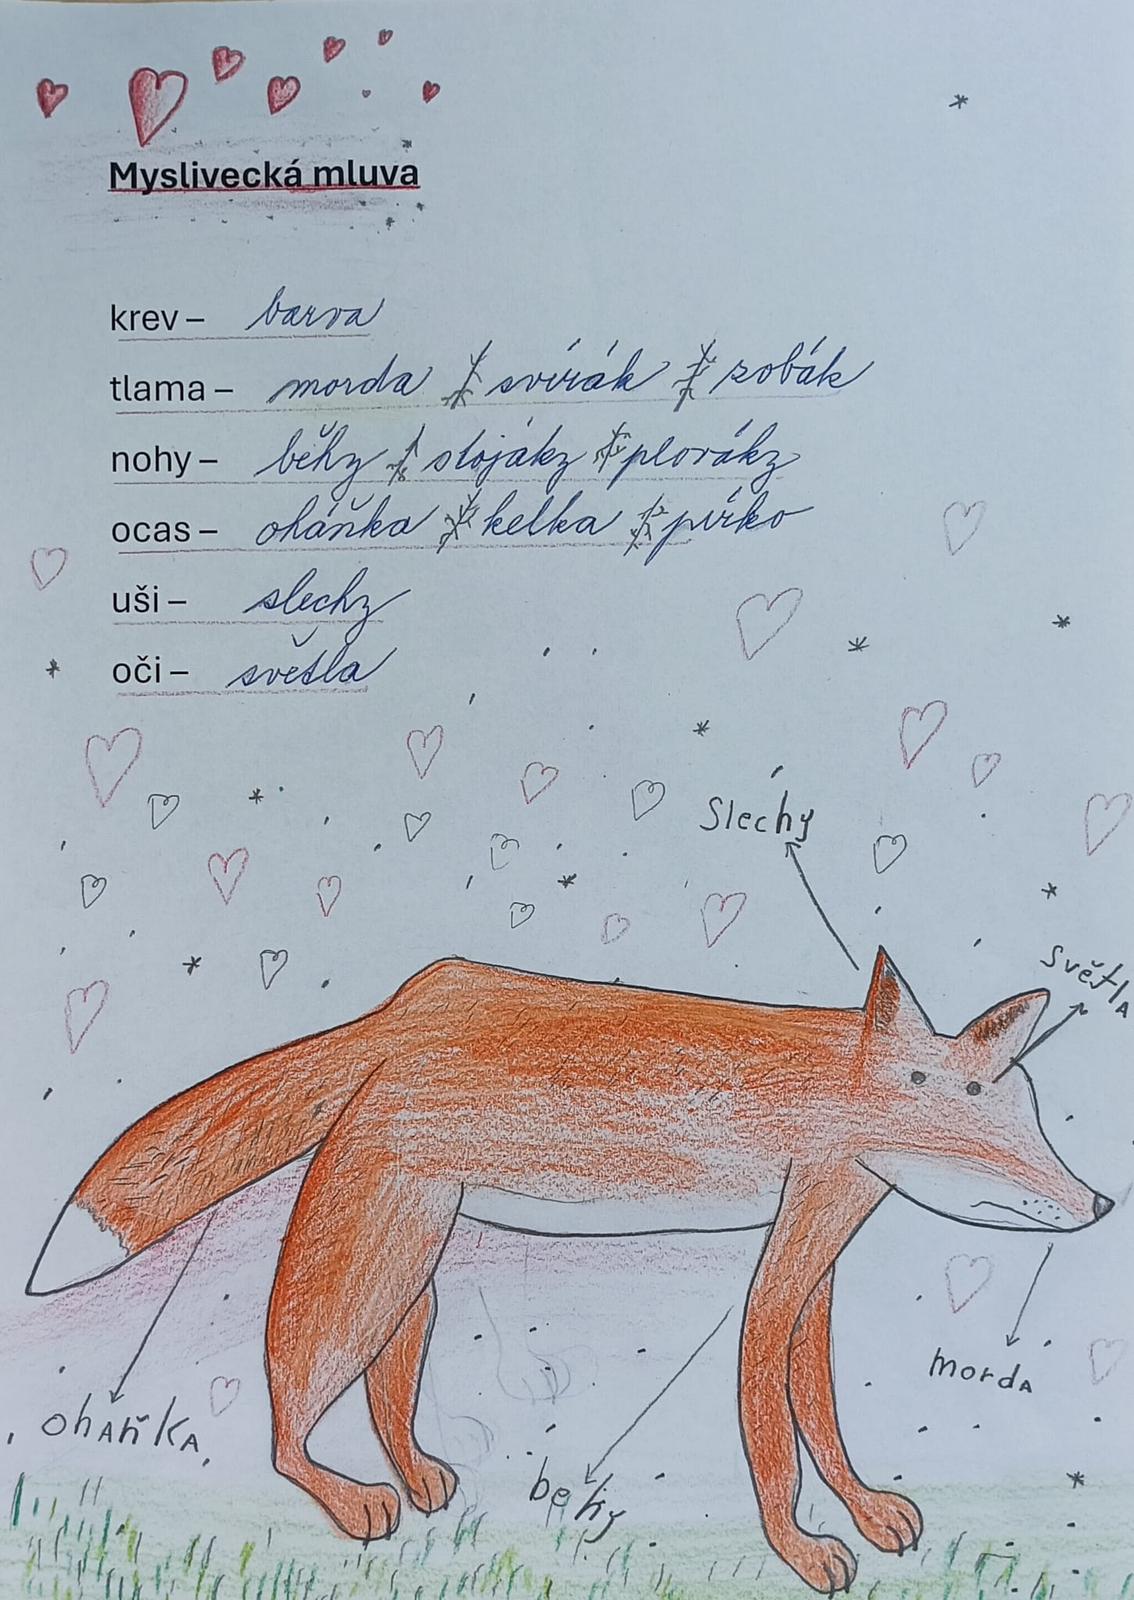 Myslivecká mluva
krev – barva
tlama – morda svírák zobák
nohy – běhy stojáky plováky
ocas – oháňka kelka pírko
uši – slechy
oči – světla
Slechy
světla
morda
oháňka
behy